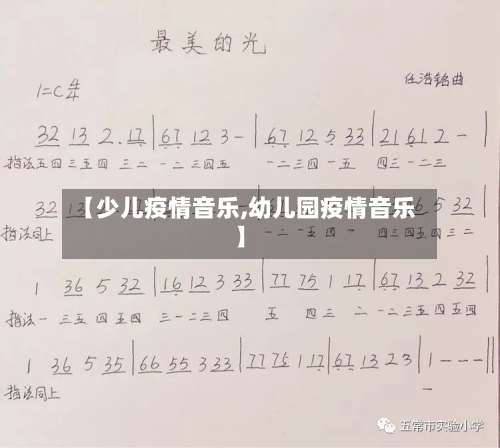 最美的光
1=C 4/4
任浩铭曲
32 13 2. 17 | 67 12 3 - | 67 12 5 33 | 21 61 2 - |
指法五四 三五四 三二 一二 三四五 一二三四 一五 四三 一二三
32 13
【少儿疫情音乐,幼儿园疫情音乐
】
5 32
指法同上 一二五四 一 四三四五三二
1 36 5 32 | 16 12 3 33 | 77 75 1 17 | 67 13 2 32 |
指法一 三五 四 五四 三一二三 四 五 四三 二 一二三五四五四
1 36 5 35 | 66 55 3 33 | 77 75 1 17 | 67 13 2 3 | 1 - - - ||
指法同上 一
五常市实验小学